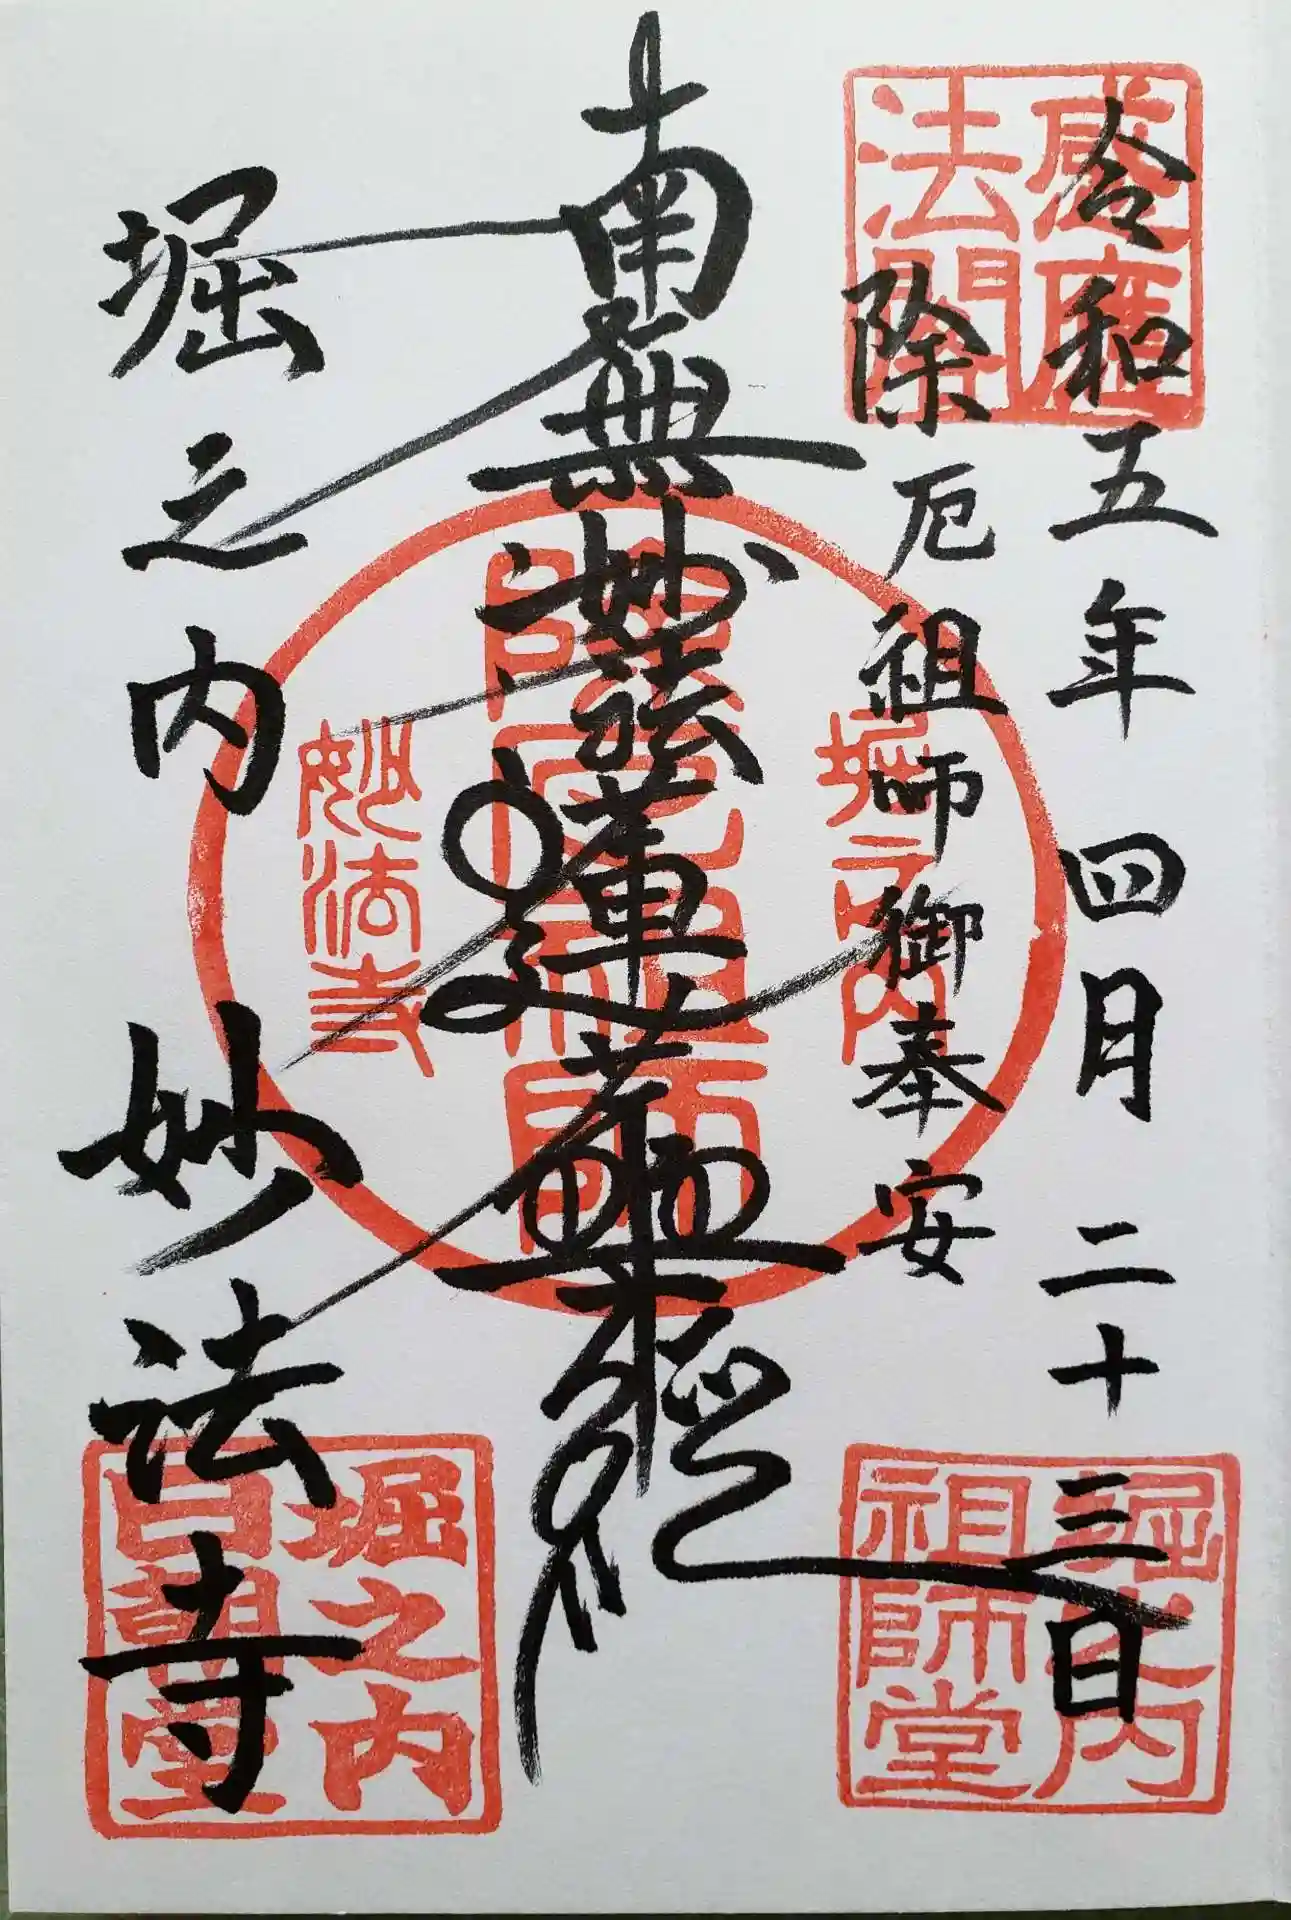 令和五年四月二十三日
除厄祖師御奉安
南無妙法蓮華経
堀之内 妙法寺
感應
法閣
堀之内
除厄祖師
妙法寺
堀之内
祖師堂
堀之内
日朝堂